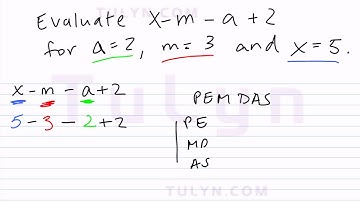 TULYN.COM
Evaluate x-m-a+2
for a=2, m=3 and x=5.
Tulyn
x-m-a+2
5-3-2+2
PEMDAS
PE
MD
AS
TULYN.COM